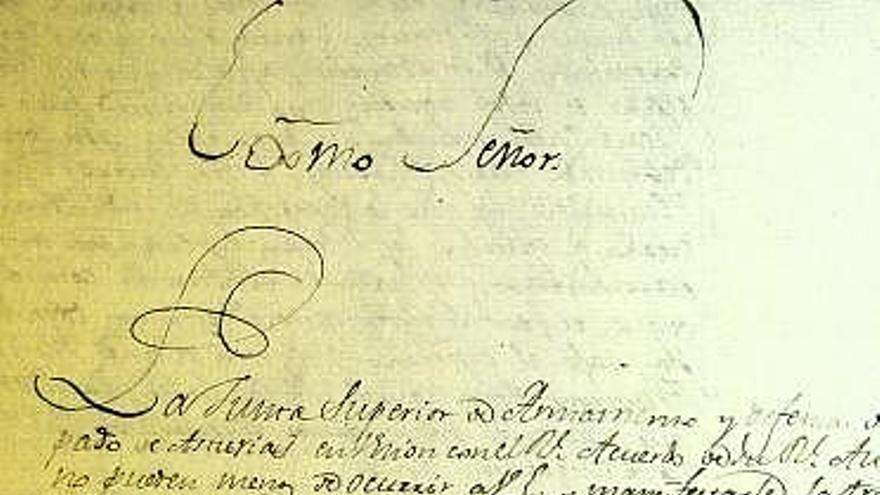 Exmo Señor.
La Junta Superior de Armamento y defensa
pado de Asturias en Union con el Rl. Acuerdo de su Rl. Au
no pueden menos de ocurrir a V.E. y manifestar